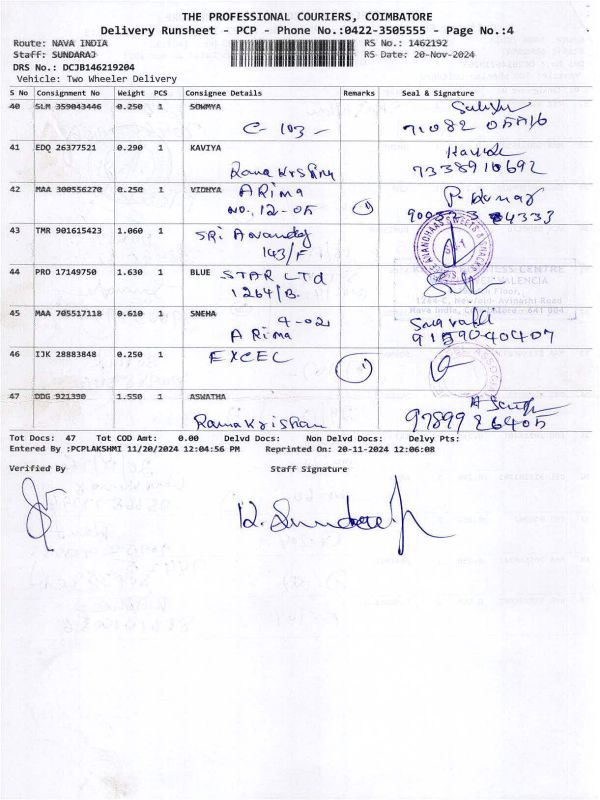 THE PROFESSIONAL COURIERS, COIMBATORE
Delivery Runsheet - PCP - Phone No.:0422-3505555 - Page No.:4
Route: NAVA INDIA RS No.: 1462192
Staff: SUNDARAJ RS Date: 20-Nov-2024
DRS No.: DCJB146219204
Vehicle: Two Wheeler Delivery
S No Consignment No Weight PCS Consignee Details Remarks Seal & Signature
40 SLM 359043446 0.250 1 SOWMYA
C-103-
41 EDQ 26377521 0.290 1 KAVIYA
7338910692
42 MAA 300556270 0.250 1 VIDHYA ARima
NO. 12-0A 1
43 TMR 901615423 1.060 1 SRi Anandas
143/F
44 PRO 17149750 1.630 1 BLUE STAR LTd
1264/B.
45 MAA 705517118 0.610 1 SNEHA 4-02
ARima 9159040407
46 IJK 28883848 0.250 1 EXCEL 1
47 DDG 921390 1.550 1 ASWATHA
Ramakrishan 9789926405
Tot Docs: 47 Tot COD Amt: 0.00 Delvd Docs: Non Delvd Docs: Delvy Pts:
Entered By :PCPLAKSHMI 11/20/2024 12:04:56 PM Reprinted On: 20-11-2024 12:06:08
Verified By Staff Signature